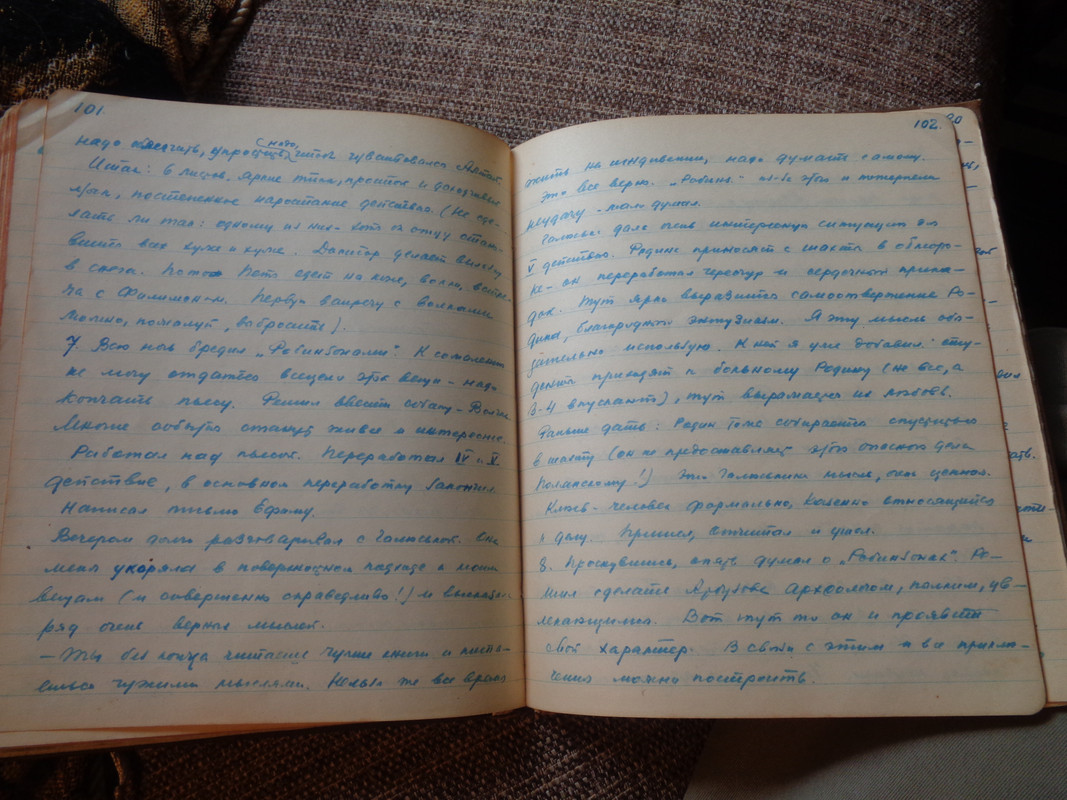 101.
надо облегчить, упростить, чтоб чувствовался Алтай.
Итак: 6 лицов. Яркие типы, простой и доходчивый
язык, постепенное нарастание действия. (Не сде-
лать ли так: одному из них - Коту за отцу стано-
вится все хуже и хуже. делает вылазку
в снега. Потом Петя едет на коне, волки, встре-
ча с Филимоном. Первую встречу с волками
можно, пожалуй, выбросить).
7. Всю ночь бредил „Робинзонами". К сожалению
не могу отдаться всецело этой вещи - надо
кончать пьесу. Решил ввести собаку - Волчка.
Многие события станут живее и интереснее.
Работал над пьесой. Переработал IV и V
действие, в основном переработку закончил.
Написал письмо Ефиму.
Вечером долго разговаривал с Галюськой. Она
меня укоряла в поверхностном подходе к моим
вещам (и совершенно справедливо!) и высказала
ряд очень верных мыслей.
- Ты без конца читаешь чужие книги и пита-
ешься чужими мыслями. Нельзя же все время
102.
жить на иждивении, надо думать самому.
Это все верно. „Робинз." из-за этого и потерпели
неудачу - мало думал.
Галюська дала очень интересную ситуацию для
V действия. Родина приносят с шахты в обморо-
ке - он переработал чересчур и сердечный припа-
док. Тут ярко выразится самоотвержение Ро-
дина, благородный энтузиазм. Я эту мысль обя-
зательно использую. К ней я уже добавил: сту-
денты приходят к больному Родину (не все, а
3-4 впускают), тут выражается их любовь.
Раньше дать: Родин тоже собирается спуститься
в шахту (он не предоставляет этого опасного дела
Полянскому!) Это Галюськина мысль, очень ценная.
- человек формально, казенно относящийся
к делу. Пришел, отчитал и ушел.
8. Проснувшись, опять думал о „Робинзонах". Ре-
шил сделать Арбузова археологом, пылким, ув-
лекающимся. Вот тут то он и проявит
свой характер. В связи с этим и все приклю-
чения можно построить.